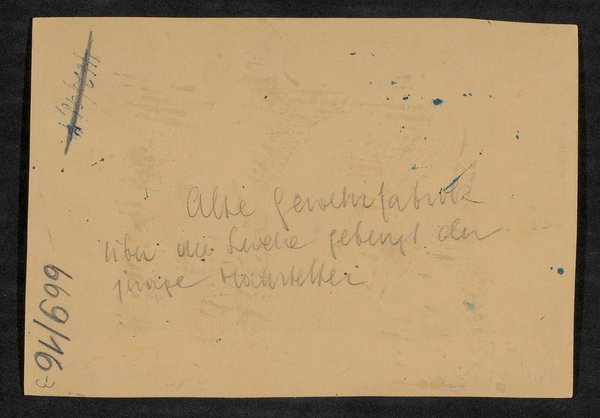 Alte Gewehrfabrik
über die Leiche gebeugt der
junge Hochstetter
669/16
3